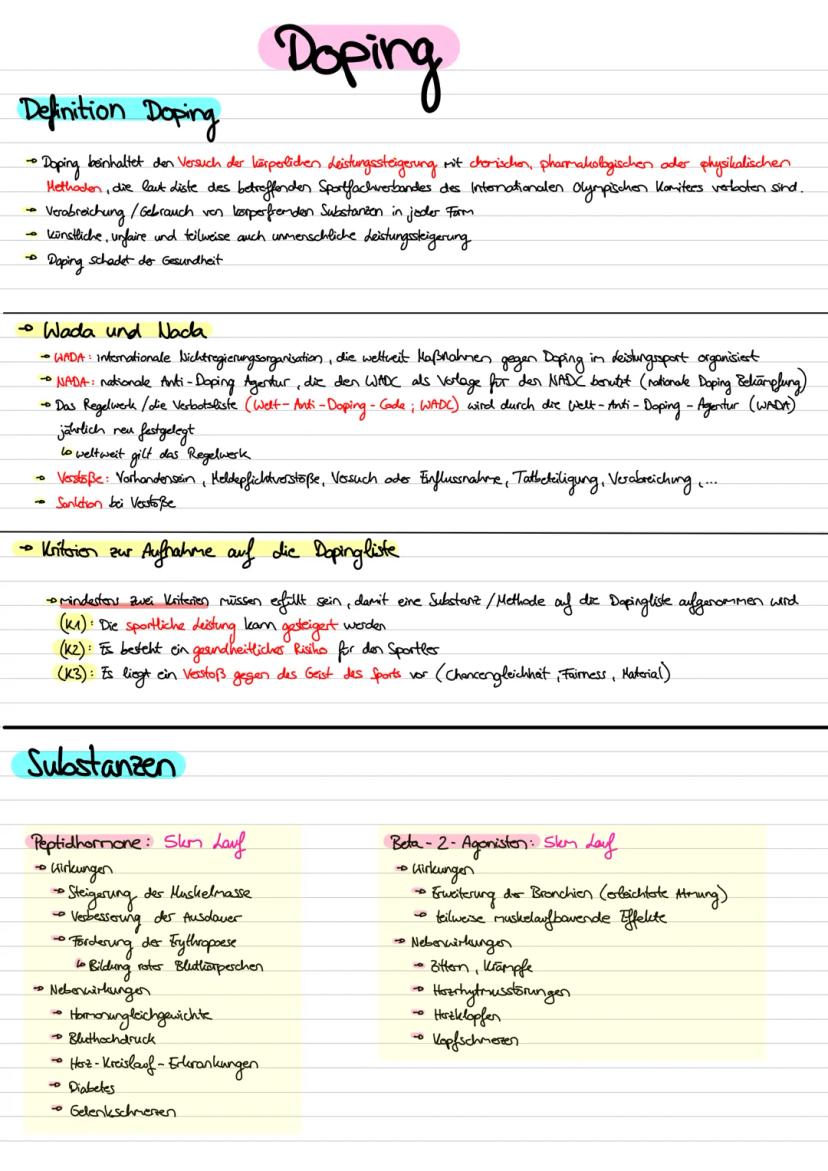 Doping
Definition Doping
→ Doping beinhaltet den Versuch der körperlichen Leistungssteigerung mit chemischen, pharmakologischen oder physikalischen
Methoden, die laut Liste des betreffenden Sportfachverbandes des Internationalen Olympischen Komitees verboten sind.
→ Verabreichung / Gebrauch von körperfremden Substanzen in jeder Form
→ künstliche, unfaire und teilweise auch unmenschliche Leistungssteigerung
→ Doping schadet der Gesundheit
→ Wada und Nada
→ WADA: internationale Nichtregierungsorganisation, die weltweit Maßnahmen gegen Doping im Leistungssport organisiert
→ NADA: nationale Anti-Doping Agentur, die den WADC als Vorlage für den NADC benutzt (nationale Doping Bekämpfung)
→ Das Regelwerk / die Verbotsliste (Welt-Anti-Doping-Code; WADC) wird durch die Welt-Anti-Doping-Agentur (WADA)
jährlich neu festgelegt
↳ weltweit gilt das Regelwerk
→ Verstöße: Vorhandensein, Meldepflichtverstöße, Versuch oder Einflussnahme, Tatbeteiligung, Verabreichung,...
→ Sanktion bei Verstöße
→ Kriterien zur Aufnahme auf die Dopingliste
→ mindestens zwei Kriterien müssen erfüllt sein, damit eine Substanz / Methode auf die Dopingliste aufgenommen wird
(K1): Die sportliche Leistung kann gesteigert werden
(K2): Es besteht ein gesundheitliches Risiko für den Sportler
(K3): Es liegt ein Verstoß gegen des Geist des Sports vor (Chancengleichheit, Fairness, Material)
Substanzen
Peptidhormone: 5km Lauf
→ Wirkungen
→ Steigerung der Muskelmasse
→ Verbesserung der Ausdauer
→ Förderung der Erythropoese
↳ Bildung roter Blutkörperschen
→ Nebenwirkungen
→ Hormonungleichgewichte
→ Bluthochdruck
→ Herz-Kreislauf-Erkrankungen
→ Diabetes
→ Gelenkschmerzen
Beta-2-Agonisten: 5km Lauf
→ Wirkungen
→ Erweiterung der Bronchien (erleichtete Atmung)
→ teilweise muskelaufbauende Effekte
→ Nebenwirkungen
→ Zittern, Krämpfe
→ Herzrhytmusstörungen
→ Herzklopfen
→ Kopfschmerzen